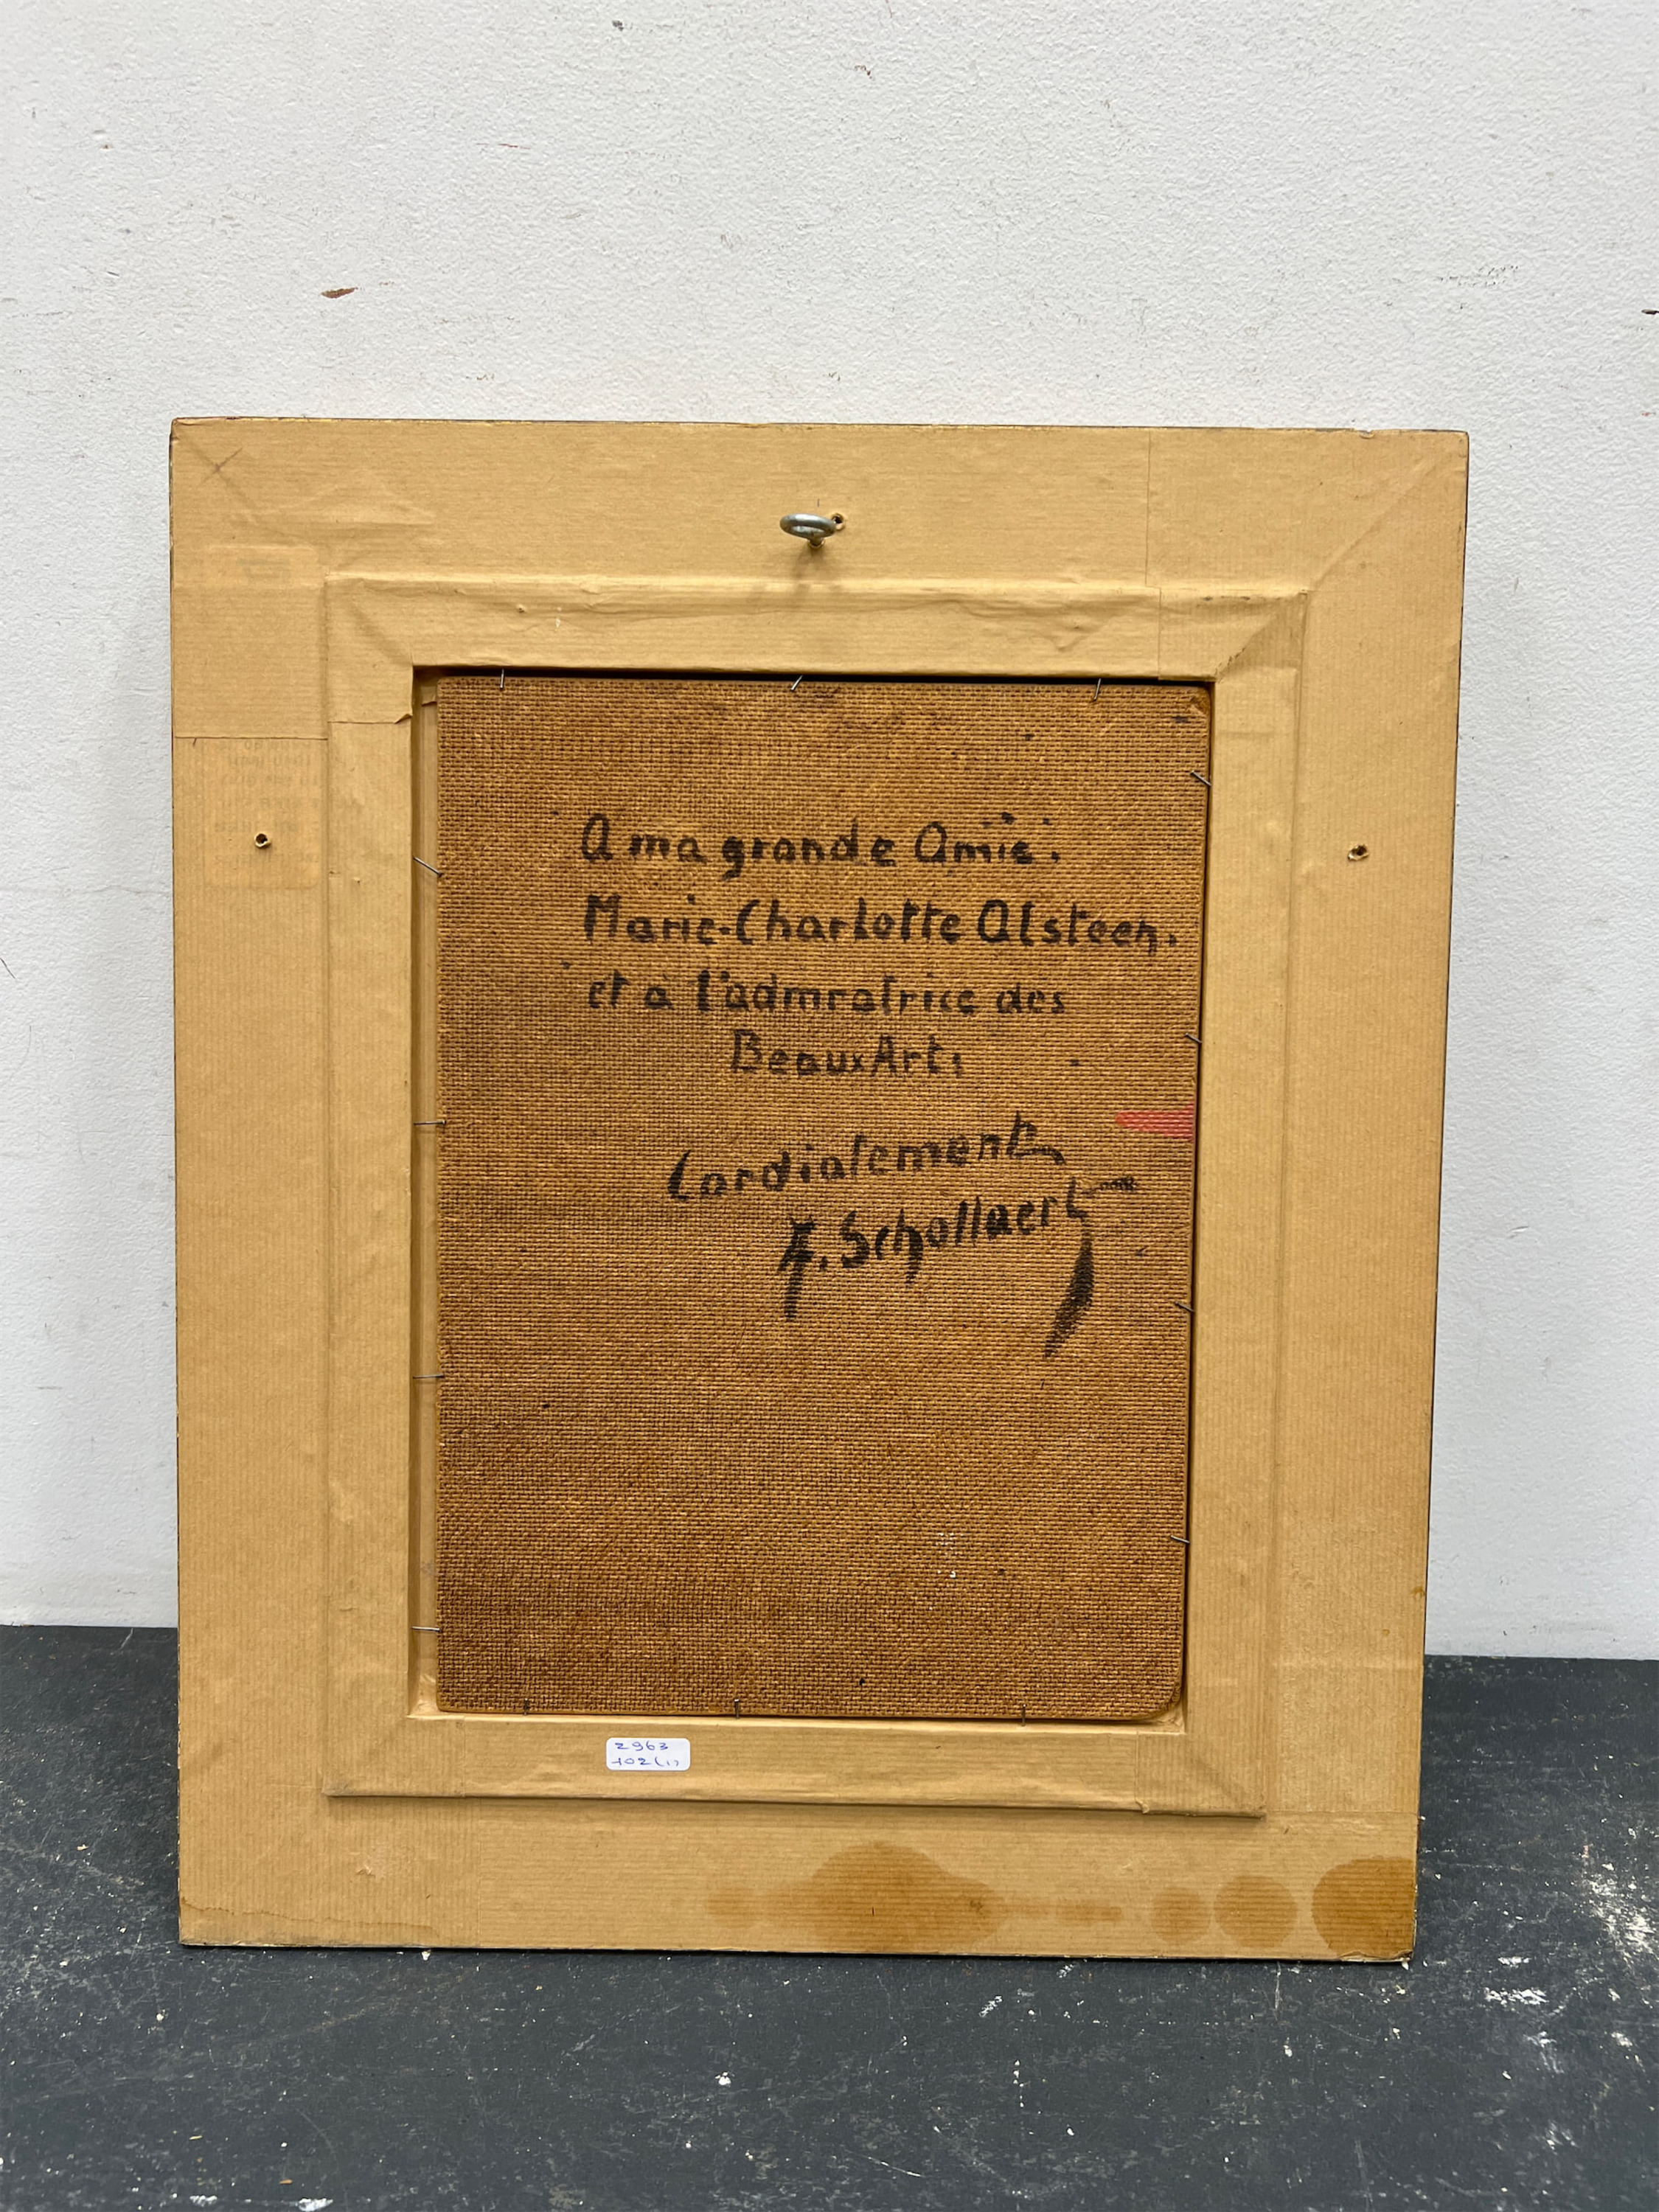 A ma grande Amie.
Marie-Charlotte Alsteen.
et a l'admratrice des
Beaux Arts
Cordialement
F. Schollaert
2963
102 (1)